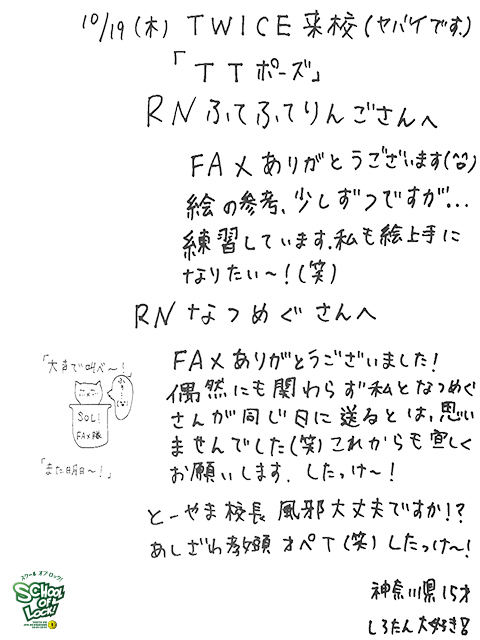 10/19(木) TWICE来校(ヤバイです。)
「TTポーズ」
RNふてふてりんごさんへ
FAXありがとうございます(^^)
絵の参考、少しずつですが...
練習しています。私も絵上手に
なりたい〜!(笑)
RNなつめぐさんへ
FAXありがとうございました!
偶然にも関わらず私となつめぐ
さんが同じ日に送るとは、思い
ませんでした(笑)これからも宜しく
お願いします。したっけ〜!
「大声で叫べ〜!」
SOL!
FAX隊
「また明日〜!」
とーやま校長 風邪大丈夫ですか!?
あしざわ教頭 オペT(笑)したっけ〜!
神奈川県15才
しろたん大好き8
スクール オブ ロック!
SCHOOL OF LOCK!